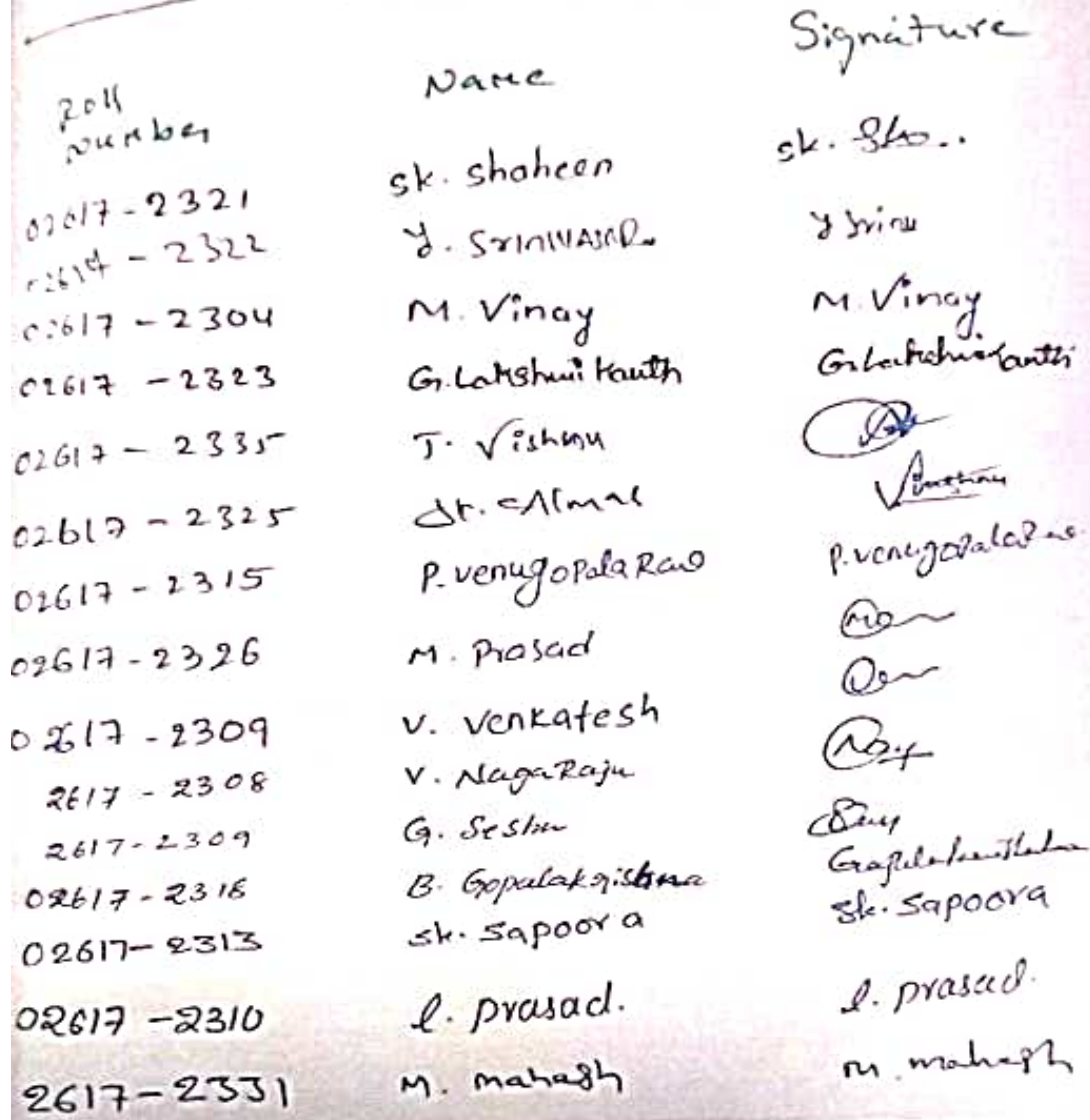 Roll Number Name Signature
02617-2321 sk. shaheen sk. Sha..
02617-2322 Y. SrinivasaRao Y Srinu
02617-2304 M. Vinay M. Vinay
02617-2323 G. Lakshmi Kanth G. Lakshmi Kanth
02617-2335 T. Vishnu
02617-2325
02617-2315 P. venugopala Rao P. venugopala Rao
02617-2326 M. Prasad
02617-2309 V. Venkatesh
2617-2308 V. NagaRaju
2617-2309 G. Seshu
02617-2316 B. Gopalakrishna Gopalakrishna
02617-2313 sk. sapoora sk. sapoora
02617-2310 l. prasad. l. prasad.
2617-2331 M. mahesh m. mahesh